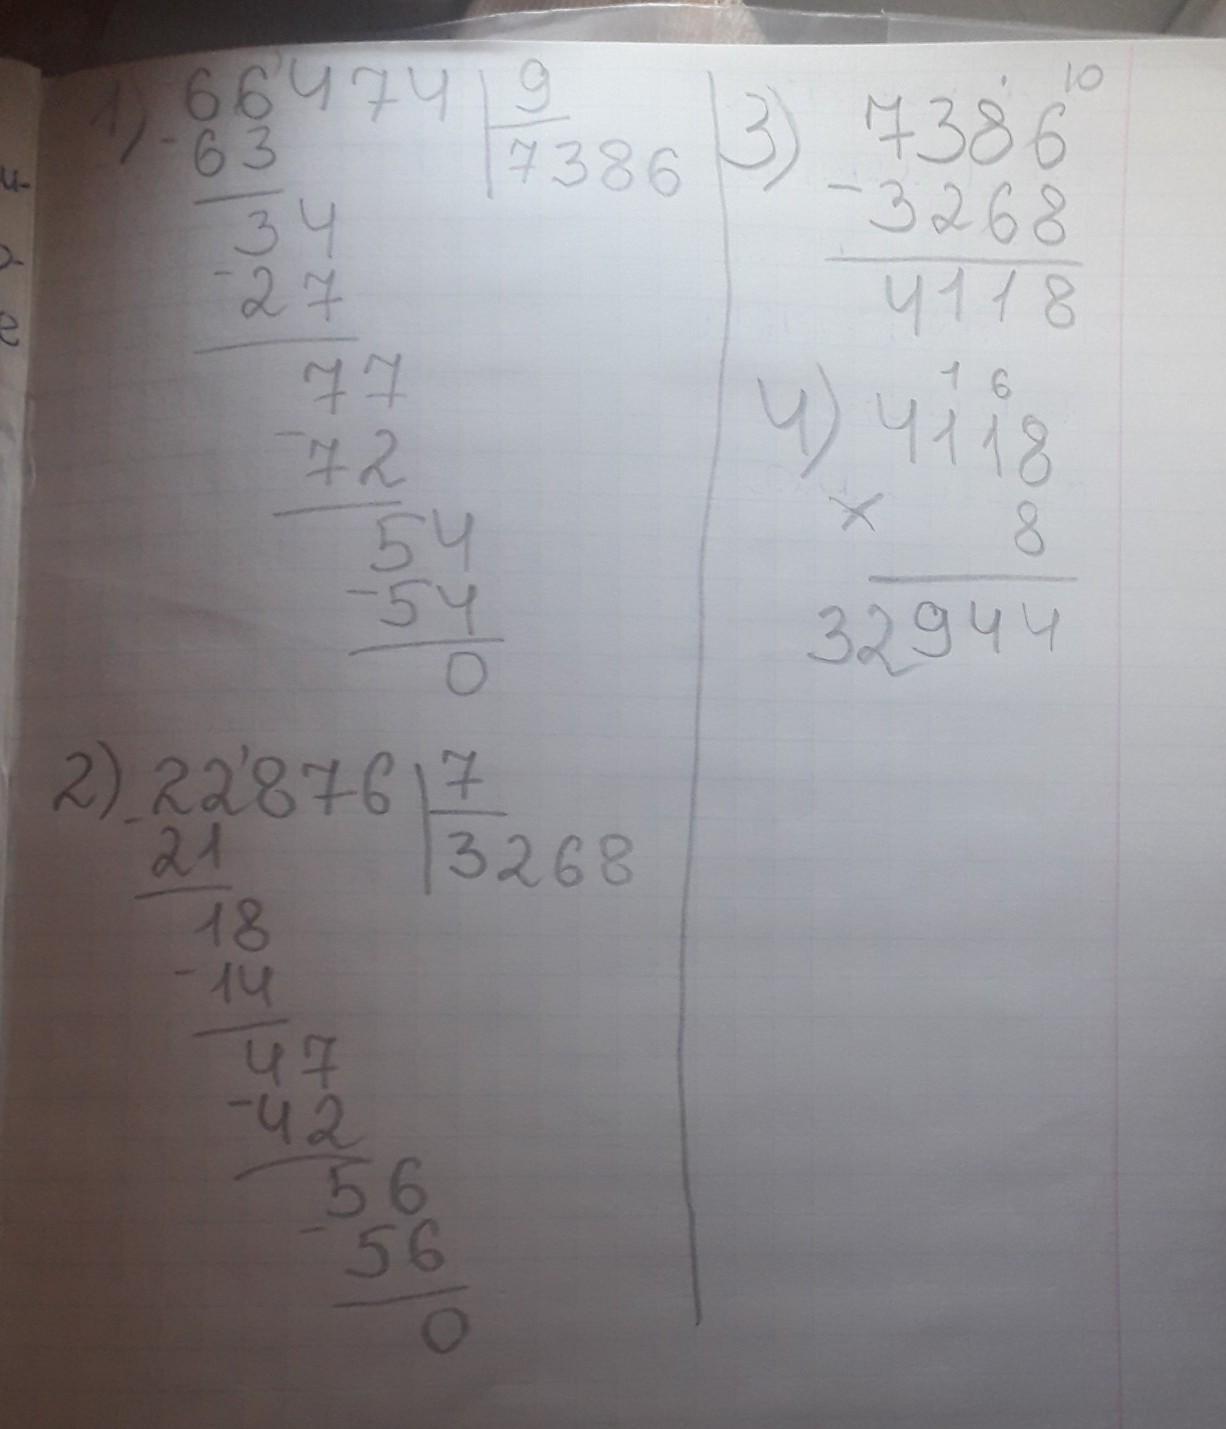 1) 66'474 | 9
- 63 | 7386
34
- 27
77
- 72
54
- 54
0
2) 22'876 | 7
- 21 | 3268
18
- 14
47
- 42
56
- 56
0
10
3) 7386
- 3268
4118
1 6
4) 4118
× 8
32944